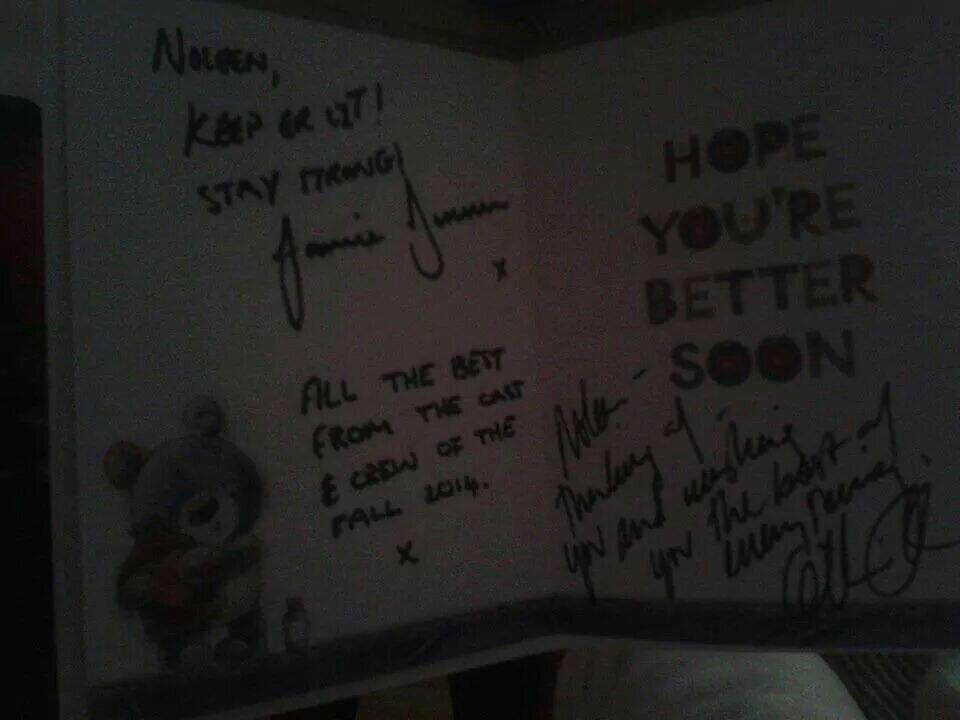 NOLEEN,
KEEP ER LIT!
STAY STRONG!
Jamie
x
ALL THE BEST
FROM THE CAST
& CREW OF THE
FALL 2014.
x
HOPE
YOU'RE
BETTER
SOON
Thinking of
you and wishing
you the best of